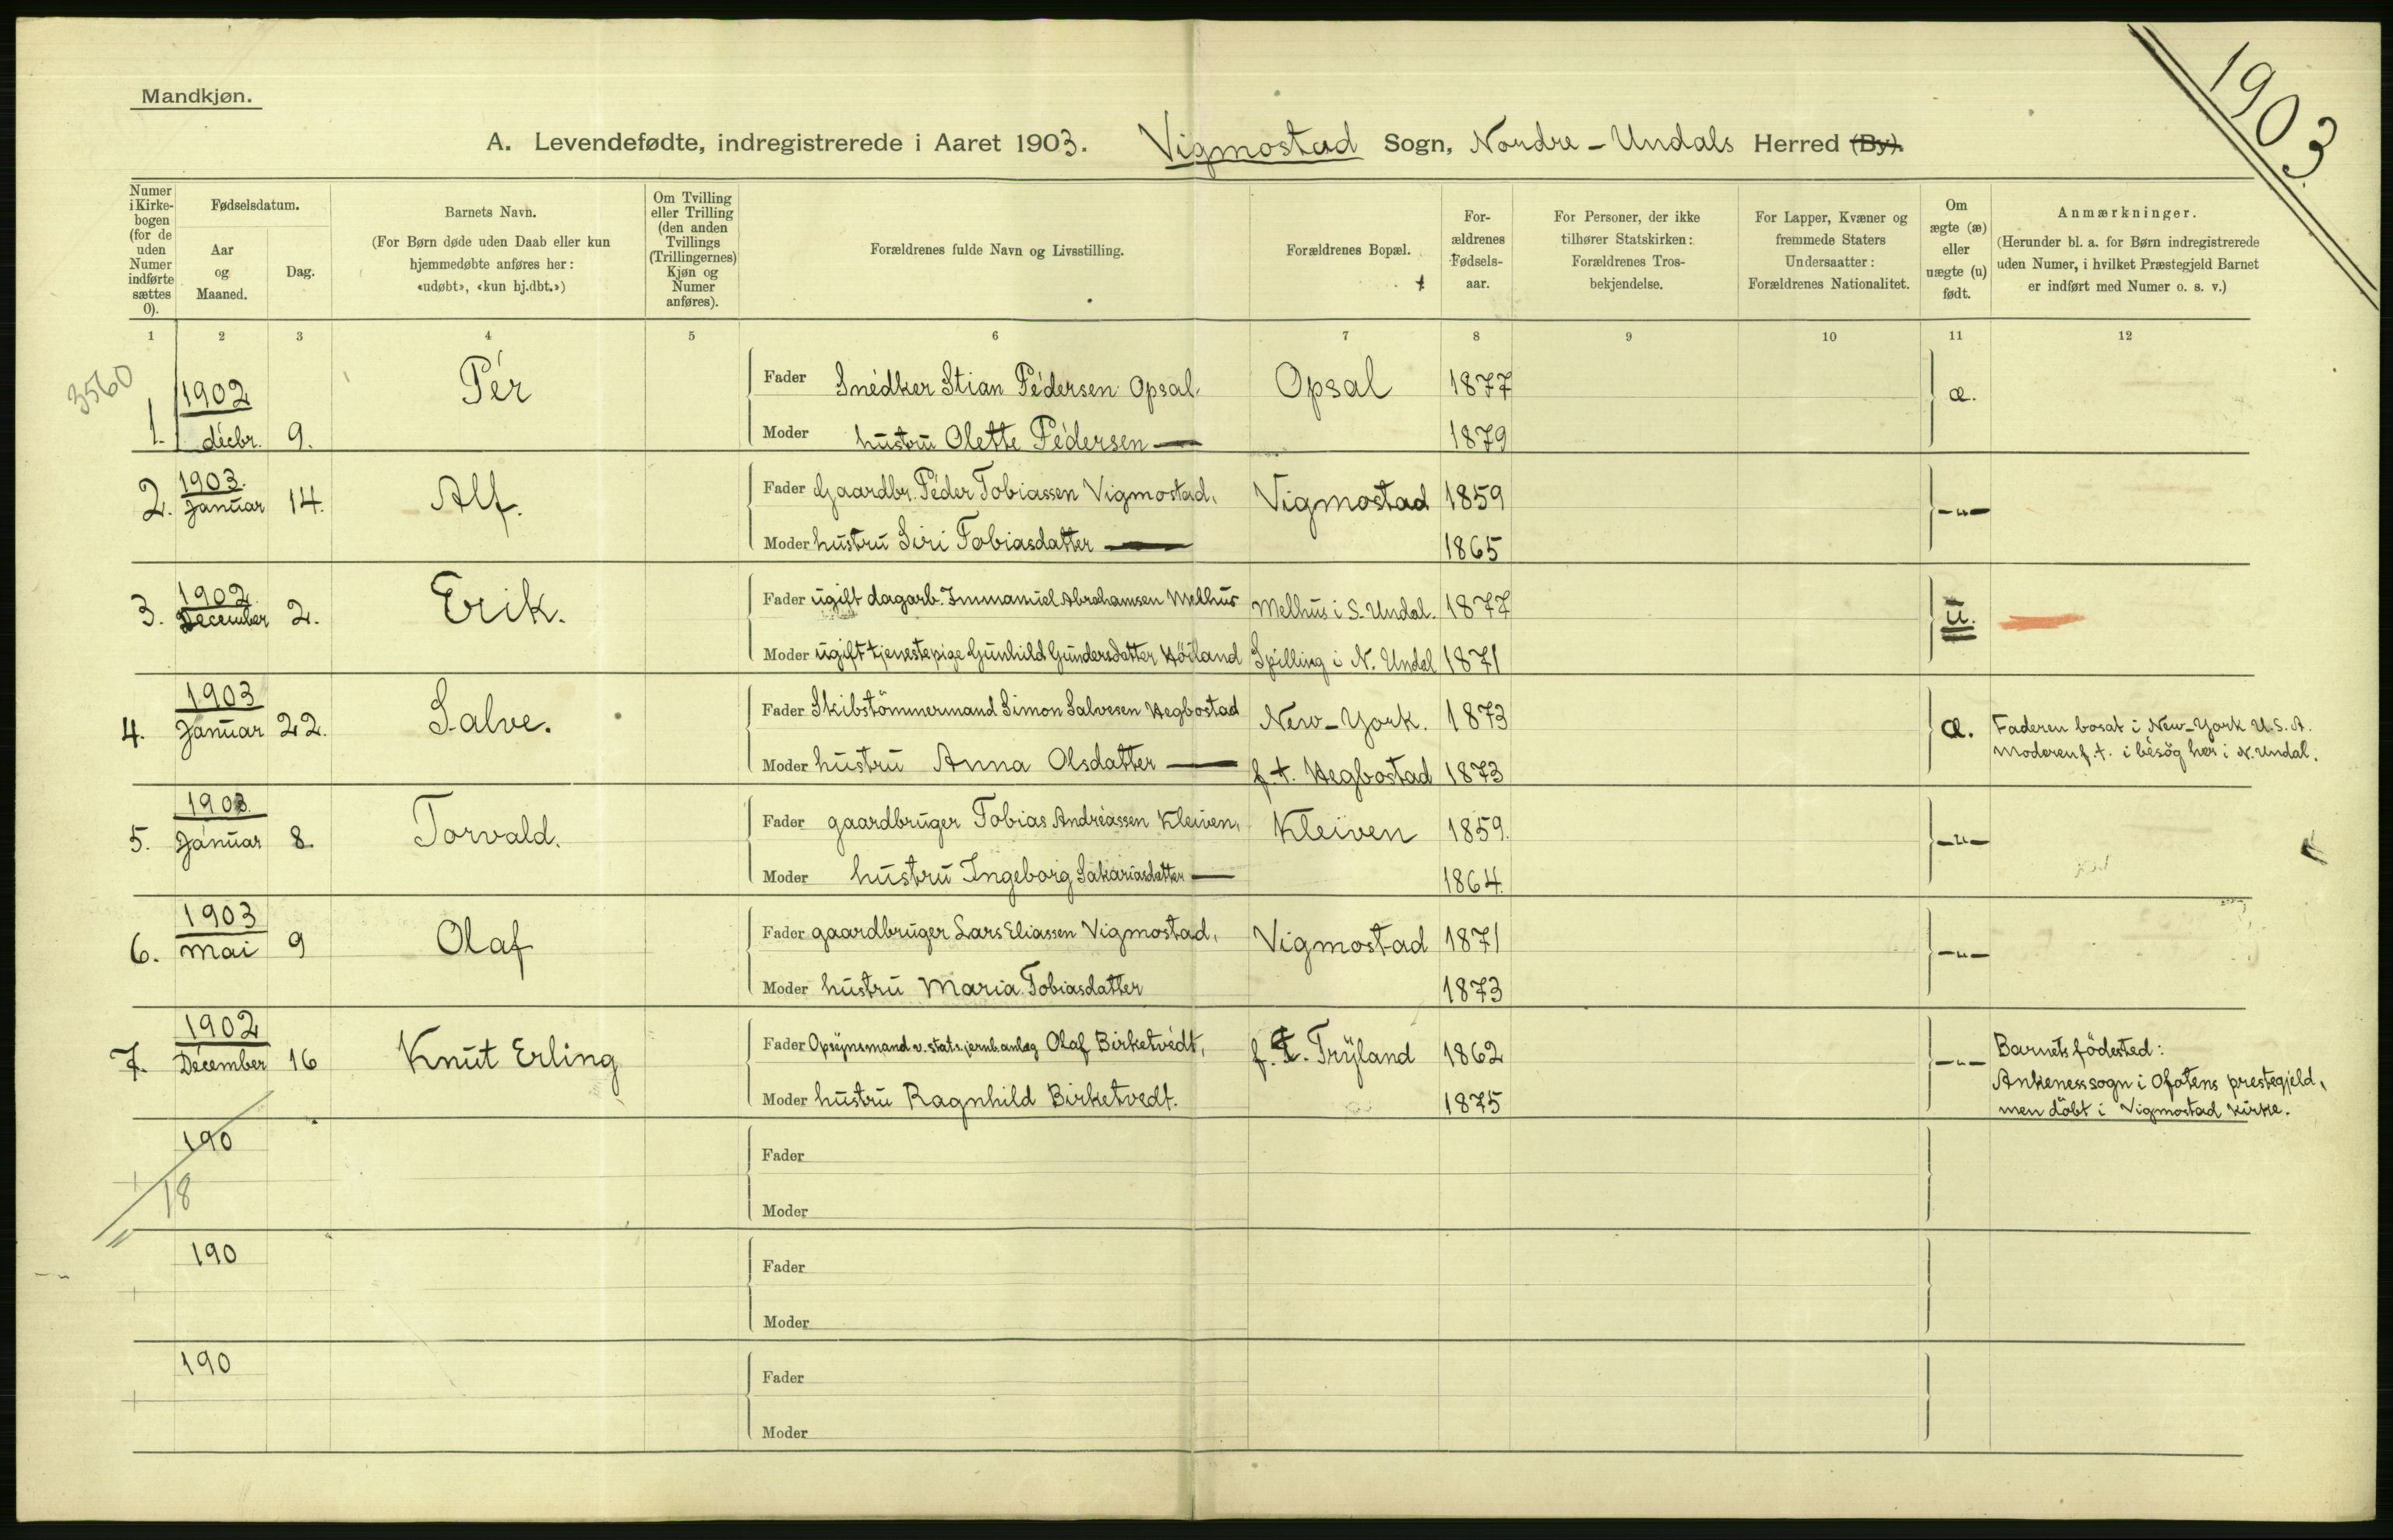 1903
Mandkjøn.
A. Levendefødte, indregistrerede i Aaret 1903. Vigmostad Sogn, Nordre-Undals Herred (By).
Numer i Kirkebogen (for de uden Numer indførte sættes 0).
Fødselsdatum.
Aar og Maaned.
Dag.
Barnets Navn.
(For Børn døde uden Daab eller kun hjemmedøbte anføres her: «udøbt», «kun hj.dbt.»)
Om Tvilling eller Trilling (den anden Tvillings (Trillingernes) Kjøn og Numer anføres).
Forældrenes fulde Navn og Livsstilling.
Forældrenes Bopæl.
Forældrenes Fødselsaar.
For Personer, der ikke tilhører Statskirken: Forældrenes Trosbekjendelse.
For Lapper, Kvæner og fremmede Staters Undersaatter: Forældrenes Nationalitet.
Om ægte (æ) eller uægte (u) født.
Anmærkninger.
(Herunder bl. a. for Børn indregistrerede uden Numer, i hvilket Præstegjeld Barnet er indført med Numer o. s. v.)
1 2 3 4 5 6 7 8 9 10 11 12
3560
1. 1902 decbr. 9. Per
Fader Snedker Stian Pedersen Opsal. Opsal 1877 æ.
Moder hustru Olette Pedersen — 1879
2. 1903. Januar 14. Alf.
Fader Gaardbr. Peder Tobiassen Vigmostad, Vigmostad 1859 —"—
Moder hustru Siri Tobiasdatter — 1865
3. 1902 December 2. Erik.
Fader ugift dagarb. Immanuel Abrahamsen Melhus Melhus i S. Undal. 1877 u.
Moder ugift tjenestepige Gunhild Gundersdatter Höiland Spilling i N. Undal 1871
4. 1903 Januar 22. Salve.
Fader Skibstömmermand Simon Salvesen Hegbostad New-York. 1873 æ. Faderen bosat i New-York U.S.A.
Moder hustru Anna Olsdatter — f.t. Hegbostad 1873 Moderen f.t. i besög her i N. Undal.
5. 1903. Januar 8. Torvald.
Fader gaardbruger Tobias Andreassen Kleiven, Kleiven 1859. —"—
Moder hustru Ingeborg Sakariasdatter — 1864.
6. 1903 Mai 9 Olaf
Fader gaardbruger Lars Eliassen Vigmostad, Vigmostad 1871 —"—
Moder hustru Maria Tobiasdatter 1873
7. 1902 December 16 Knut Erling
Fader Opsynsmand v. stats.jernb.anlæg Olaf Birketvedt, f.t. Tryland 1862 —"— Barnets födested:
Ankenes sogn i Ofotens prestegjeld,
Moder hustru Ragnhild Birketvedt. 1875 men döbt i Vigmostad kirke.
190
18
Fader
Moder
190
Fader
Moder
190
Fader
Moder